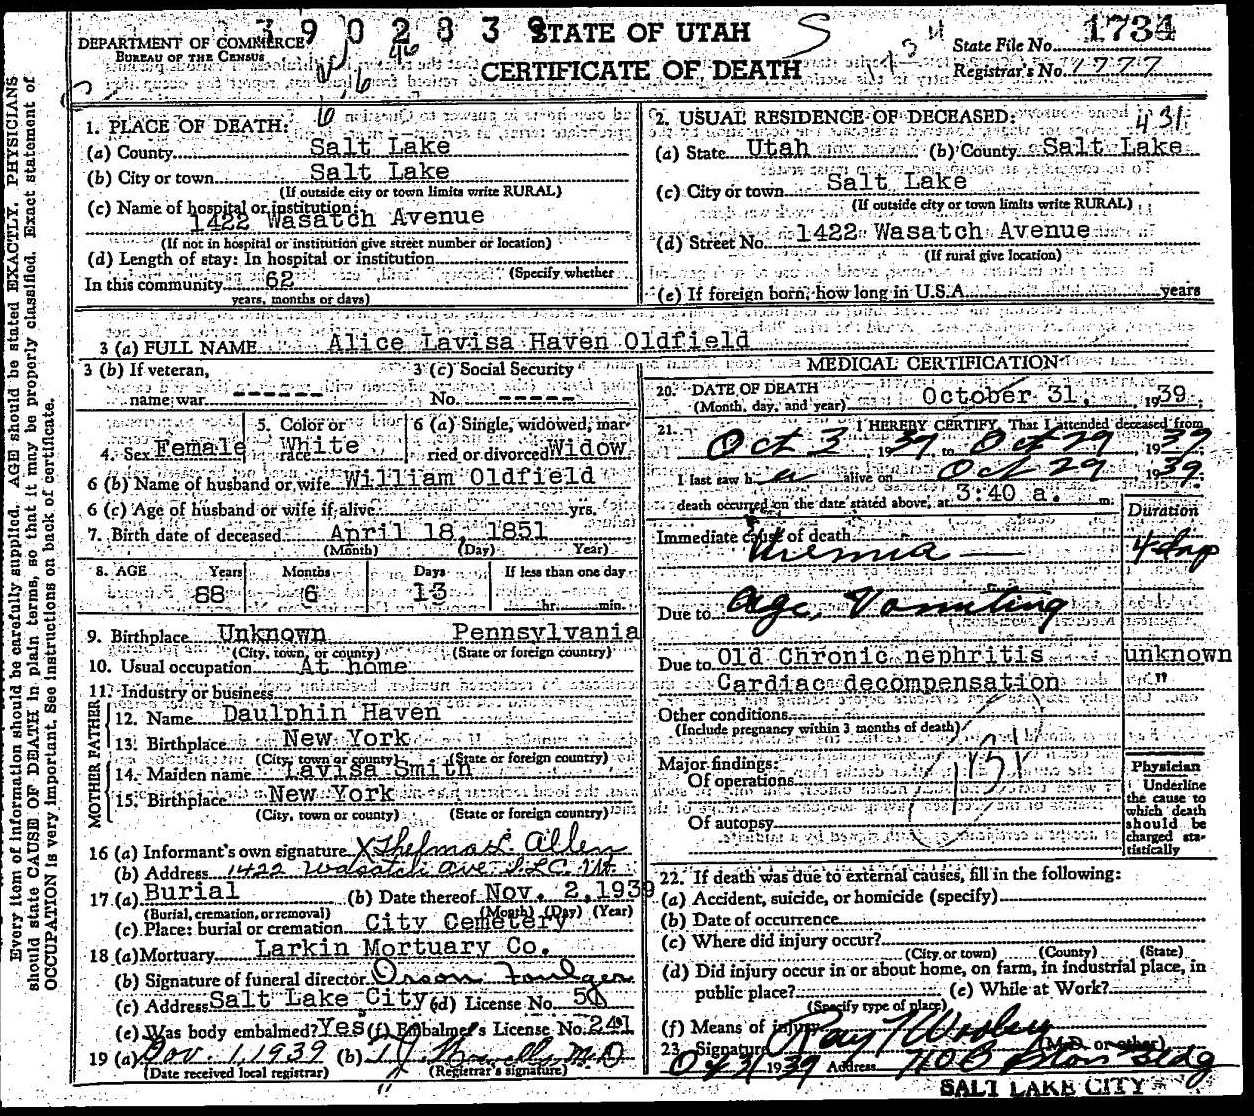 390283
STATE OF UTAH
CERTIFICATE OF DEATH
DEPARTMENT OF COMMERCE
BUREAU OF THE CENSUS
State File No. 1734
Registrar's No. 1777
Every item of information should be carefully supplied. AGE should be stated EXACTLY. PHYSICIANS
should state CAUSE OF DEATH in plain terms, so that it may be properly classified. Exact statement of
OCCUPATION is very important. See instructions on back of certificate.
1. PLACE OF DEATH:
(a) County Salt Lake
(b) City or town Salt Lake
(If outside city or town limits write RURAL)
(c) Name of hospital or institution:
1422 Wasatch Avenue
(If not in hospital or institution give street number or location)
(d) Length of stay: In hospital or institution
(Specify whether
In this community 62
years, months or days)
2. USUAL RESIDENCE OF DECEASED: 431
(a) State Utah (b) County Salt Lake
(c) City or town Salt Lake
(If outside city or town limits write RURAL)
(d) Street No. 1422 Wasatch Avenue
(If rural give location)
(e) If foreign born, how long in U.S.A. years
3 (a) FULL NAME Alice Lavisa Haven Oldfield
3 (b) If veteran, name war ------
3 (c) Social Security No. -----
4. Sex Female
5. Color or race White
6 (a) Single, widowed, married or divorced Widow
6 (b) Name of husband or wife William Oldfield
6 (c) Age of husband or wife if alive yrs.
7. Birth date of deceased April 18, 1851
(Month) (Day) Year)
8. AGE Years Months Days If less than one day
88 6 13 hr. min.
9. Birthplace Unknown Pennsylvania
(City, town, or county) (State or foreign country)
10. Usual occupation At home
11. Industry or business
FATHER
12. Name Daulphin Haven
13. Birthplace New York
(City, town or county) (State or foreign country)
MOTHER
14. Maiden name Lavisa Smith
15. Birthplace New York
(City, town or county) (State or foreign country)
16 (a) Informant's own signature X Thelma L. Allen
(b) Address 1422 Wasatch Ave. S.L.C. Ut.
17 (a) Burial (b) Date thereof Nov. 2, 1939
(Burial, cremation, or removal) (Month) (Day) (Year)
(c) Place: burial or cremation City Cemetery
18 (a) Mortuary Larkin Mortuary Co.
(b) Signature of funeral director Orson Foulger
(c) Address Salt Lake City (d) License No.
(e) Was body embalmed? Yes (f) Embalmer's License No. 241
19 (a) Nov. 1, 1939 (b) M.D.
(Date received local registrar) (Registrar's signature)
MEDICAL CERTIFICATION
20. DATE OF DEATH
(Month, day, and year) October 31, 1939
21. I HEREBY CERTIFY, That I attended deceased from
Oct 3 1939 to Oct 29, 1939
I last saw her alive on Oct 29 1939.
death occurred on the date stated above, at 3:40 a. m.
Duration
Immediate cause of death
Uremia 4 days
Due to Age, Vomiting
Due to Old Chronic nephritis unknown
Cardiac decompensation "
Other conditions
(Include pregnancy within 3 months of death)
131
Major findings:
Of operations
Of autopsy
Physician
Underline
the cause to
which death
should be
charged sta-
tistically
22. If death was due to external causes, fill in the following:
(a) Accident, suicide, or homicide (specify)
(b) Date of occurrence
(c) Where did injury occur?
(City or town) (County) (State)
(d) Did injury occur in or about home, on farm, in industrial place, in
public place? (e) While at Work?
(Specify type of place)
(f) Means of injury
23. Signature Ray T Woolsey (M.D. or other)
Oct 31 1939 Address Bldg
SALT LAKE CITY